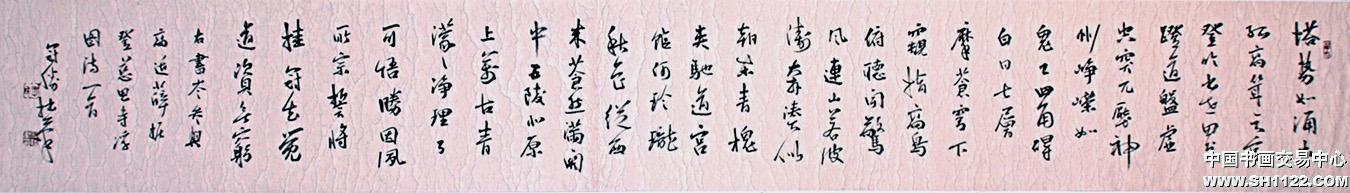 塔勢如涌出
孤高聳天宮
登臨出世界
蹬道盤虛
空突兀壓神
州崢嶸如
鬼工四角碍
白日七層
摩蒼穹下
窺指高鳥
俯聽聞驚
風連山若波
濤奔湊似
朝東青槐
夾馳道宮
館何玲瓏
秋色從西
來蒼然滿關
中五陵北原
上萬古青
濛々淨理了
可悟勝因夙
所宗誓將
挂冠去覺
道資無窮
右書岑參與
高適薛據
登慈恩寺浮
圖詩一首
中国书画交易中心
www.SH1122.com